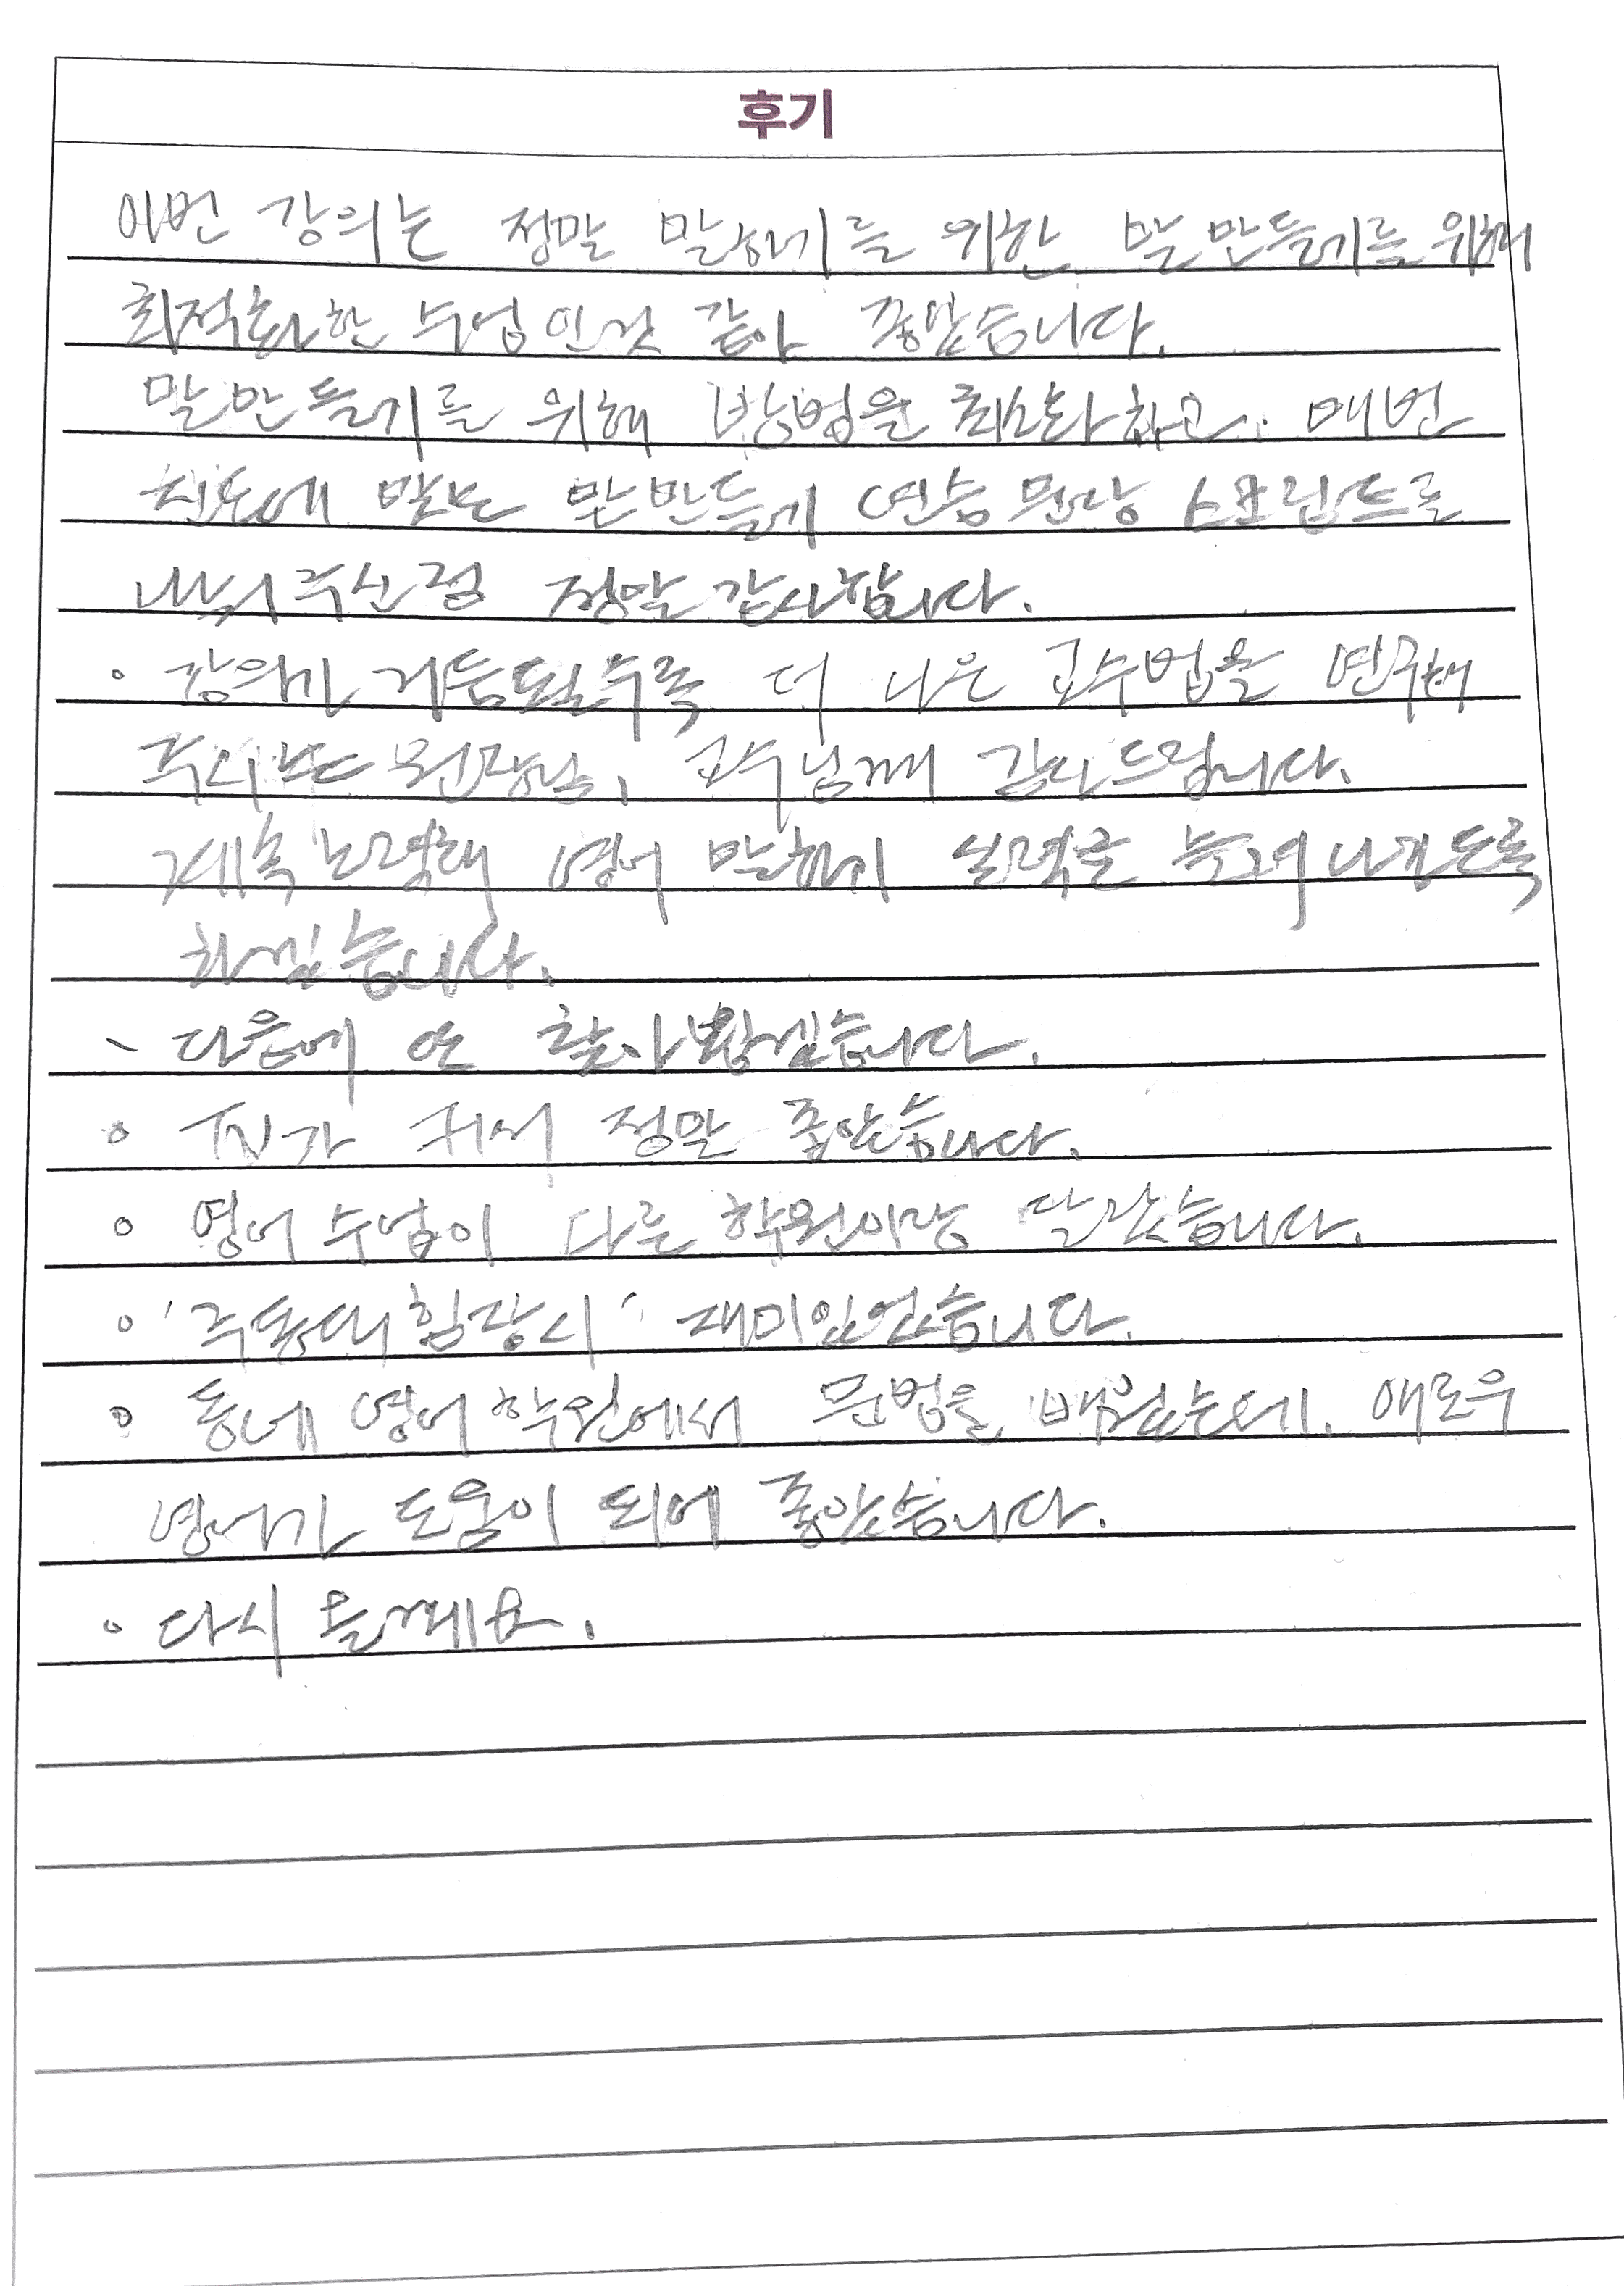 후기
이번 강의는 정말 말하기를 위한 말 만들기를 위해
최적화한 수업인것 같아 좋았습니다.
말만들기를 위해 방법을 최적화하고. 매번
진도에 맞는 말만들기 연습 문장 스크립트로
주신점 정말 감사합니다.
· 강의가 거듭될수록 더 나은 교수법을 연구해
주시는 원장님, 교수님께 감사드립니다.
계속 노력해 영어 말하기 실력을 늘려나가도록
하겠습니다.
- 다음에 또 찾아뵙겠습니다.
· TV가 커서 정말 좋았습니다.
· 영어 수업이 다른 학원이랑 달랐습니다.
· '주동대힘장시' 재미있었습니다.
· 동네 영어 학원에서 문법을 배웠는데. 애로우
영어가 도움이 되어 좋았습니다.
· 다시 올께요.